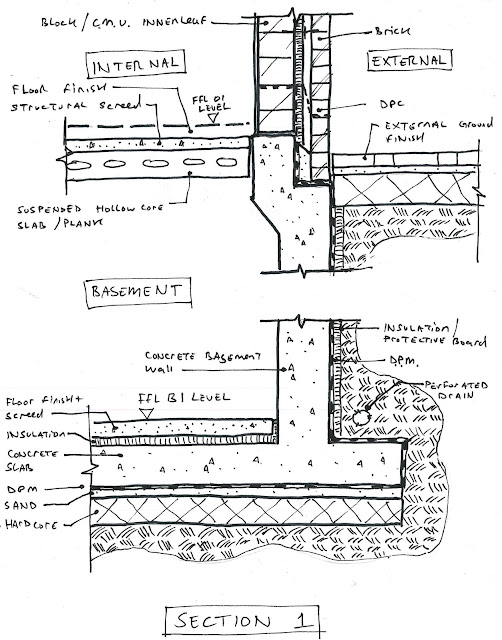 BLOCK / C.M.U. INNERLEAF
BRICK
INTERNAL
EXTERNAL
FLOOR FINISH
STRUCTURAL SCREED
FFL 01
LEVEL
DPC
EXTERNAL GROUND
FINISH
SUSPENDED HOLLOW CORE
SLAB / PLANK
BASEMENT
INSULATION/
PROTECTIVE BOARD
CONCRETE BASEMENT
WALL
DPM.
PERFORATED
DRAIN
FLOOR FINISH +
SCREED
FFL B1 LEVEL
INSULATION
CONCRETE
SLAB
DPM
SAND
HARDCORE
SECTION 1